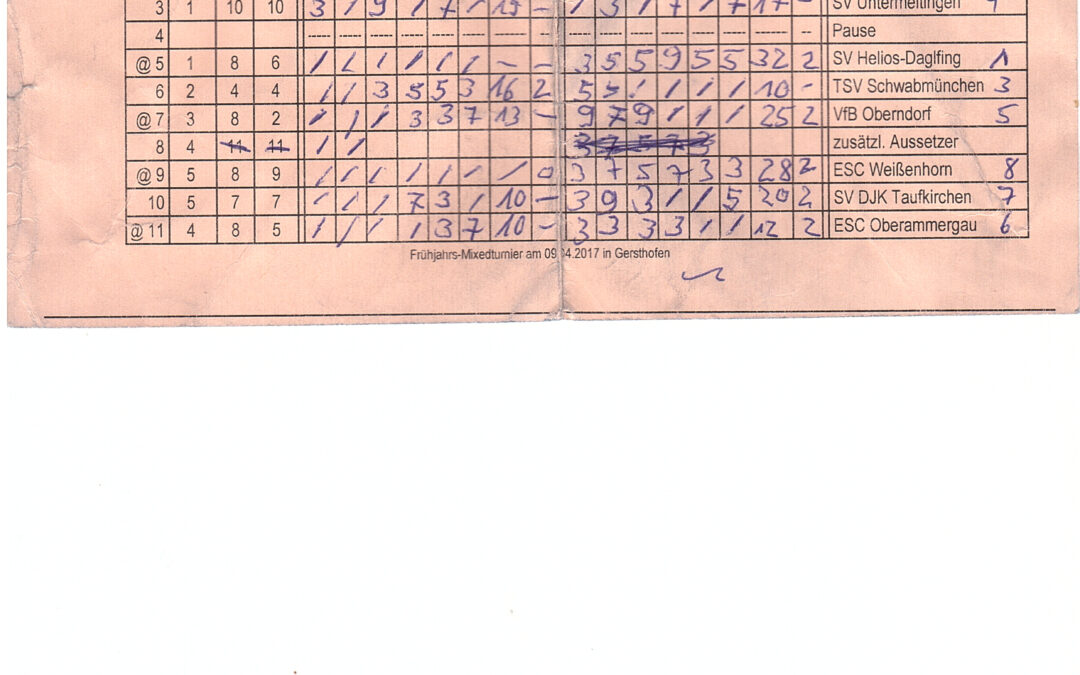 3 1 10 10 3 / 9 / 7 / 19 - / 3 / 7 / 7 17 - SV Untermeitingen
4 ----- ----- ----- ----- ----- ----- ------ -- ----- ----- ----- ----- ----- ----- ------ -- Pause
@ 5 1 8 6 / / / / / / - - 3 5 5 9 5 5 32 2 SV Helios-Daglfing 1
6 2 4 4 / / 3 5 5 3 16 2 5 5 / / / / 10 - TSV Schwabmünchen 3
@ 7 3 8 2 / / / 3 3 7 13 - 9 7 9 / / / 25 2 VfB Oberndorf 5
8 4 11 11 / / 3 7 5 7 3 zusätzl. Aussetzer
@ 9 5 8 9 / / / / / / / 0 3 7 5 7 3 3 28 2 ESC Weißenhorn 8
10 5 7 7 / / / 7 3 / 10 - 3 9 3 / / 5 20 2 SV DJK Taufkirchen 7
@ 11 4 8 5 / / / / 3 7 10 - 3 3 3 3 / / 12 2 ESC Oberammergau 6
Frühjahrs-Mixedturnier am 09.04.2017 in Gersthofen